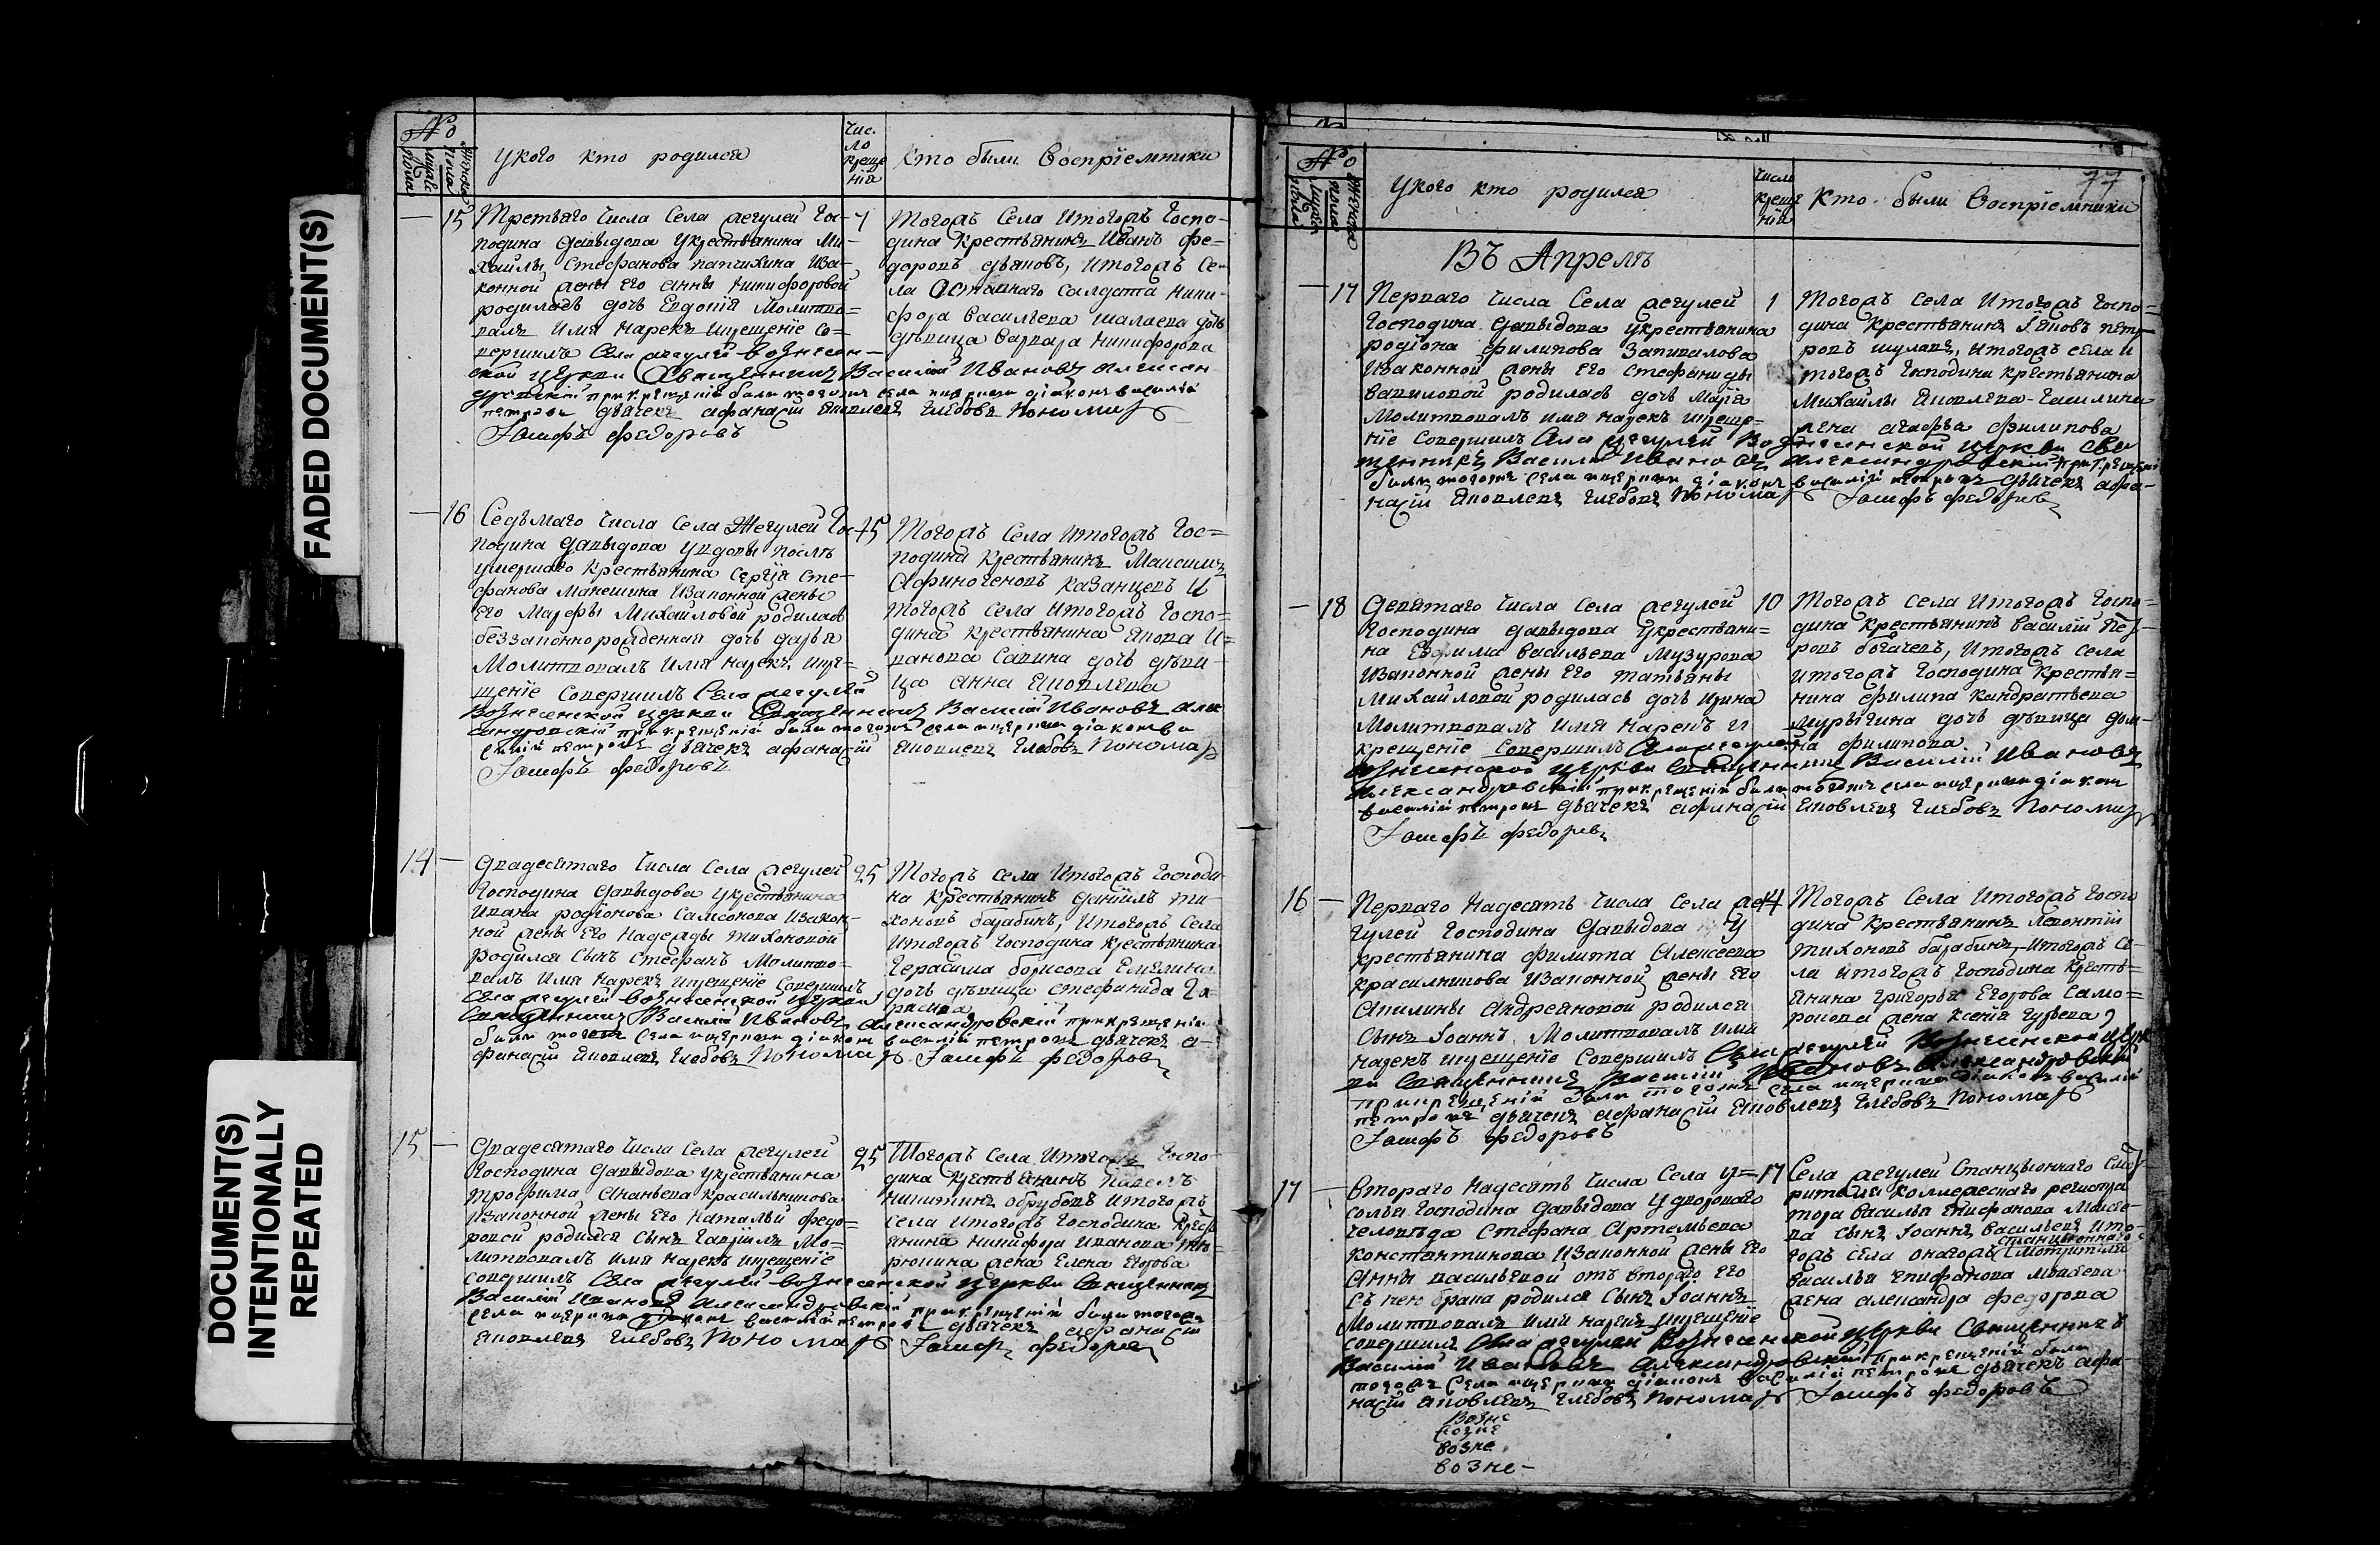 FADED DOCUMENT(S)
DOCUMENT(S)
INTENTIONALLY
REPEATED
№
мужеска пола
женска пола
У кого кто родился
Чис-
ло
креще
нія
Кто были Воспріемники
15
Третьяго числа Села Жегулей Гос-
подина Давыдова у крестьянина Ми-
хайлы Стефанова Папчихина иза-
конной жены его Анны Никифоровой
родилась дочь Евдокія Молитво-
валъ имя нарекъ и крещеніе со-
вершилъ Села Жегулей Вознесен-
ской церкви Священникъ Василій Ивановъ Алексан
дровскій при крещеніи были тогожъ села и церкви діаконъ василій
петровъ дьячекъ афанасій яковлевъ Глебовъ Пономарь
Іосифъ федоровъ
7
Тогожъ Села и тогожъ Госпо-
дина крестьянинъ Иванъ Фе-
доровъ Дьяновъ, и тогожъ Се-
ла Отставнаго Салдата Ники-
фора Васильева Шалаева дочь
девица Варвара Никифорова
16
Седьмаго числа Села Жегулей Гос-
подина Давыдова у вдовы после
умершаго крестьянина Сергія Сте-
фанова Манешина изаконной жены
Его Марфы Михайловой родилась
беззаконнорожденная дочь Дарья
Молитвовалъ имя нарекъ и кре-
щеніе совершилъ Села Жегулей
Вознесенской церкви Священникъ Василій Ивановъ Алек
сандровскій при крещеніи были тогожъ села и церкви діаконъ ва
силій петровъ дьячекъ афанасій яковлевъ Глебовъ Пономарь
Іосифъ федоровъ
15
Тогожъ Села и тогожъ Гос-
подина крестьянинъ Максимъ
Афиногеновъ Казанцевъ и
тогожъ села и тогожъ Госпо-
дина крестьянина Якова И-
ванова Савина дочь деви-
ца Анна Яковлева
14
Двадесятаго числа Села Жегулей
Господина Давыдова у крестьянина
Ивана Родіонова Самсонова изакон-
ной жены его Надежды Тихоновой
родился сынъ Стефанъ Молитво-
валъ имя нарекъ и крещеніе совершилъ
Села Жегулей Вознесенской церкви
Священникъ Василій Ивановъ Александровскій при крещеніи
были тогожъ села и церкви діаконъ василій петровъ дьячекъ а-
фанасій яковлевъ Глебовъ Пономарь Іосифъ федоровъ
25
Тогожъ села и тогожъ Господи-
на крестьянинъ Даніилъ Ти-
хоновъ Барабинъ, и тогожъ Села
и тогожъ Господина крестьянина
Герасима Борисова Емелина
дочь девица Стефанида Ге-
расимова
15
Двадесятаго числа Села Жегулей
Господина Давыдова у крестьянина
Трофима Ананьева Красильникова
изаконной жены его Натальи Федо-
ровой родился сынъ Гавріилъ Мо-
литвовалъ имя нарекъ и крещеніе
совершилъ Села Жегулей Вознесенской церкви Священникъ
Василій Ивановъ Александровскій при крещеніи были тогожъ
села и церкви діаконъ василій петровъ дьячекъ афанасій
яковлевъ Глебовъ Пономарь Іосифъ федоровъ
25
Тогожъ Села и тогожъ Госпо-
дина крестьянинъ Павелъ
Никитинъ Обрубовъ и тогожъ
села и тогожъ Господина крест-
янина Никифора Иванова
жена Елена Егорова
77
№
мужеска пола
женска пола
У кого кто родился
Число
креще
нія
Кто были Воспріемники
Въ Апреле
17
Перваго числа Села Жегулей
Господина Давыдова у крестьянина
Родіона Филипова Запивалова
изаконной жены его Стефаниды
Вавиловой родилась дочь Марія
Молитвовалъ имя нарекъ и креще-
ніе совершилъ Села Жегулей Вознесенской церкви Свя
щенникъ Василій Ивановъ Александровскій при крещеніи
были тогожъ села и церкви діаконъ василій петровъ дьячекъ афа-
насій яковлевъ Глебовъ Пономарь Іосифъ федоровъ
1
Тогожъ Села и тогожъ Госпо-
дина крестьянинъ Яковъ Пет-
ровъ Шулаевъ, и тогожъ села и
тогожъ Господина крестьянина
Михайлы Яковлева
жена Агафья Филипова
18
Девятаго числа Села Жегулей
Господина Давыдова у крестьяни-
на Ефима Васильева Музурова
изаконной жены его Татьяны
Михайловой родилась дочь Ирина
Молитвовалъ имя нарекъ и
крещеніе совершилъ Села Жегулей
Вознесенской церкви Священникъ Василій Ивановъ
Александровскій при крещеніи были тогожъ села и церкви діаконъ
василій петровъ дьячекъ афанасій яковлевъ Глебовъ Пономарь
Іосифъ федоровъ
10
Тогожъ села и тогожъ Госпо-
дина крестьянинъ Василій Пет-
ровъ Богачевъ, и тогожъ села
и тогожъ Господина крестья-
нина Филипа Кандратьева
Мурыгина дочь девица Дом-
на Филипова
16
Перваго надесять числа Села Же-
гулей Господина Давыдова у
крестьянина Филипа Алексеева
Красильникова изаконной жены его
Акилины Андреяновой родился
сынъ Іоаннъ Молитвовалъ имя
нарекъ и крещеніе совершилъ Села Жегулей Вознесенской церк
ви Священникъ Василій Ивановъ Александровскій
при крещеніи были тогожъ села и церкви діаконъ василій
петровъ дьячекъ афанасій яковлевъ Глебовъ Пономарь
Іосифъ федоровъ
14
Тогожъ Села и тогожъ Госпо
дина крестьянинъ Леонтій
Тихоновъ Барабинъ, и тогожъ Се-
ла и тогожъ Господина кресть-
янина Григорья Егорова
жена Ксенія Гурьева
17
Втораго надесять числа Села У-
солья Господина Давыдова у двороваго
человека Стефана Артемьева
Константинова изаконной жены его
Анны Васильевой отъ втораго его
съ нею брака родился сынъ Іоаннъ
Молитвовалъ имя нарекъ и крещеніе
совершилъ Села Жегулей Вознесенской церкви Священникъ
Василій Ивановъ Александровскій при крещеніи были
тогожъ села и церкви діаконъ василій петровъ дьячекъ афа-
насій яковлевъ Глебовъ Пономарь Іосифъ федоровъ
17
Села Жегулей Станціоннаго Смот-
рителя Коллежскаго регистра
тора Василья Епифанова
сынъ Іоаннъ Васильевъ и то-
гожъ села онагожъ Станціоннаго Смотрителя
Василья Епифанова
жена Александра Федорова
Возне
возне
возне
возне-